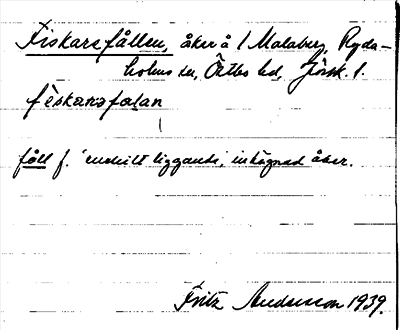 Fiskarefållen, åker å 1 Malaberg, Ryda-
holms sn, Östbo hd, Jönk. l.
fèskarafa̱lan
fåll f. 'enskilt liggande, inhägnad åker.
Fritz Andersson 1939.